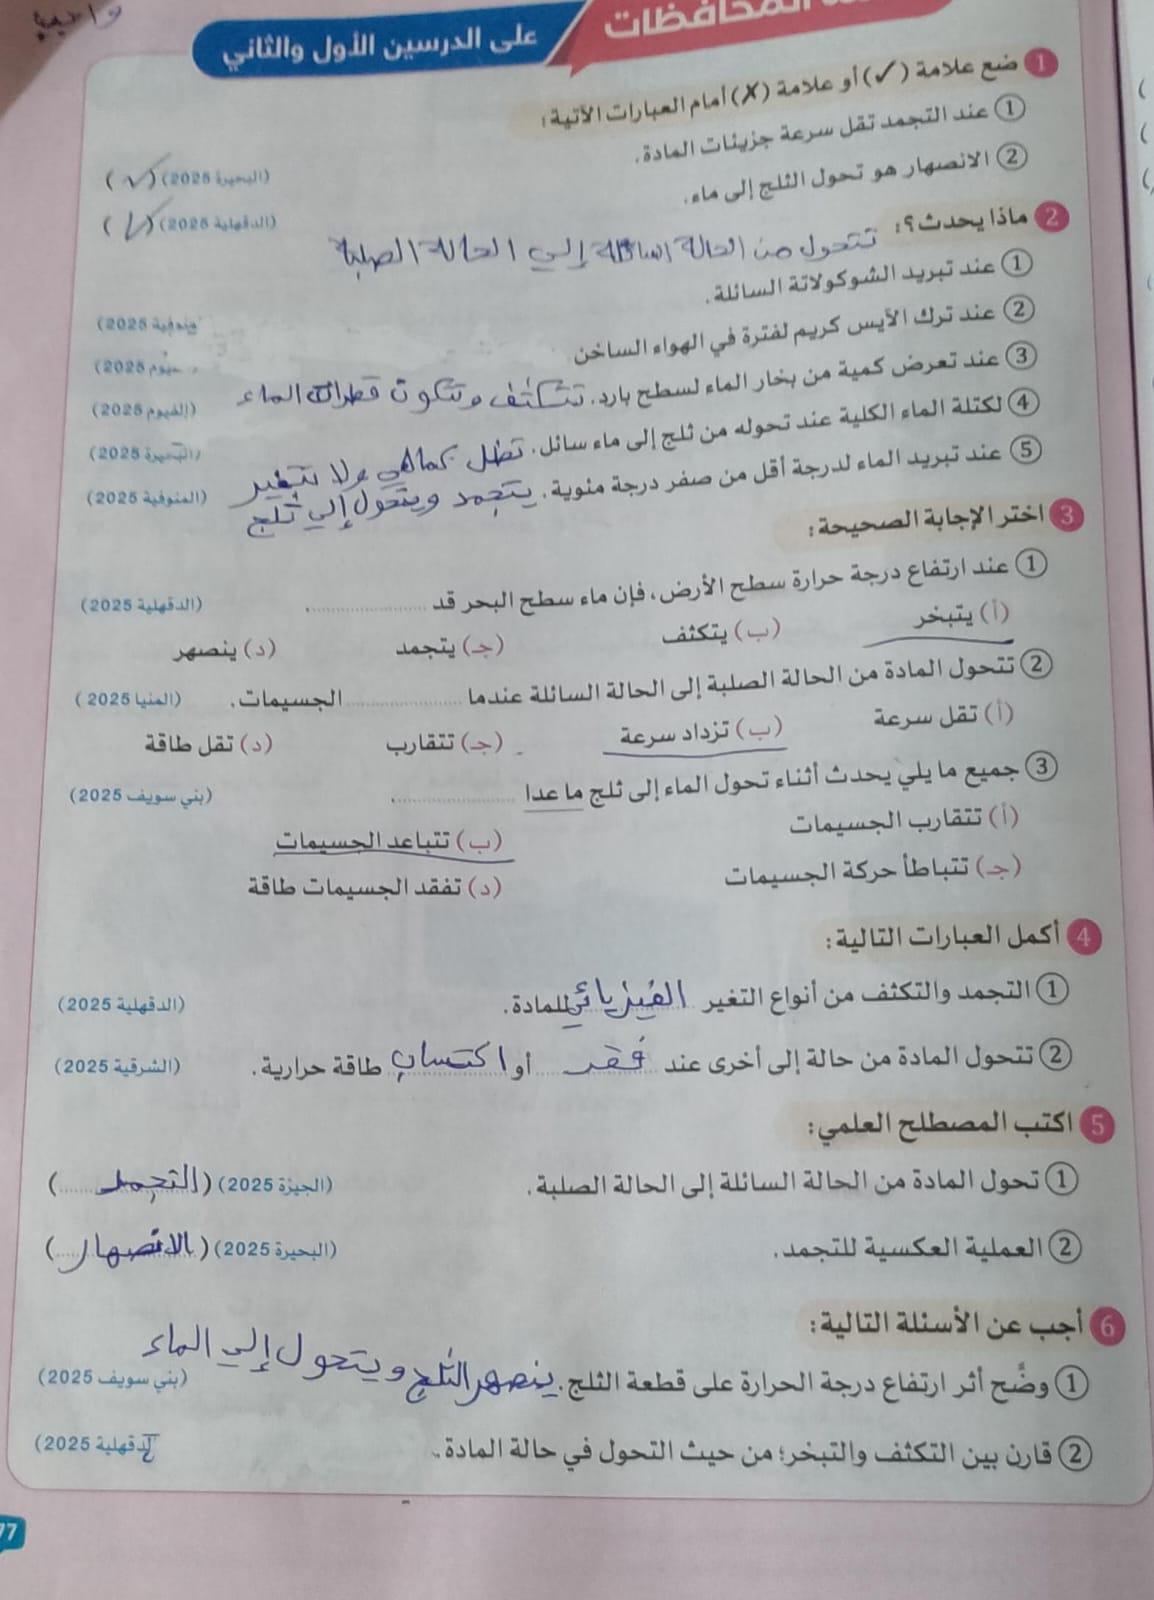 واجب
المحافظات
على الدرسين الأول والثاني
1 ضع علامة (✓) أو علامة (✗) أمام العبارات الآتية:
① عند التجمد تقل سرعة جزيئات المادة. (البحيرة 2025) (✓)
② الانصهار هو تحول الثلج إلى ماء. (الدقهلية 2025) (✓)
2 ماذا يحدث؟:
تتحول من الحالة السائلة إلي الحالة الصلبة
① عند تبريد الشوكولاتة السائلة. (منوفية 2025)
② عند ترك الآيس كريم لفترة في الهواء الساخن (فيوم 2025)
③ عند تعرض كمية من بخار الماء لسطح بارد. تتكثف وتتكون قطرات الماء (الفيوم 2025)
④ لكتلة الماء الكلية عند تحوله من ثلج إلى ماء سائل. تظل كما هي ولا تتغير (البحيرة 2025)
⑤ عند تبريد الماء لدرجة أقل من صفر درجة مئوية. يتجمد ويتحول إلي ثلج (المنوفية 2025)
3 اختر الإجابة الصحيحة:
① عند ارتفاع درجة حرارة سطح الأرض، فإن ماء سطح البحر قد .................... (الدقهلية 2025)
(أ) يتبخر (ب) يتكثف (جـ) يتجمد (د) ينصهر
② تتحول المادة من الحالة الصلبة إلى الحالة السائلة عندما .................... الجسيمات. (المنيا 2025)
(أ) تقل سرعة (ب) تزداد سرعة (جـ) تتقارب (د) تقل طاقة
③ جميع ما يلي يحدث أثناء تحول الماء إلى ثلج ما عدا .................... (بني سويف 2025)
(أ) تتقارب الجسيمات (ب) تتباعد الجسيمات
(جـ) تتباطأ حركة الجسيمات (د) تفقد الجسيمات طاقة
4 أكمل العبارات التالية:
① التجمد والتكثف من أنواع التغير الفيزيائي للمادة. (الدقهلية 2025)
② تتحول المادة من حالة إلى أخرى عند فقد أو اكتساب طاقة حرارية. (الشرقية 2025)
5 اكتب المصطلح العلمي:
① تحول المادة من الحالة السائلة إلى الحالة الصلبة. (الجيزة 2025) (التجمد)
② العملية العكسية للتجمد. (البحيرة 2025) (الانصهار)
6 أجب عن الأسئلة التالية:
① وضَّح أثر ارتفاع درجة الحرارة على قطعة الثلج. ينصهر الثلج ويتحول إلي الماء (بني سويف 2025)
② قارن بين التكثف والتبخر؛ من حيث التحول في حالة المادة. (الدقهلية 2025)
77